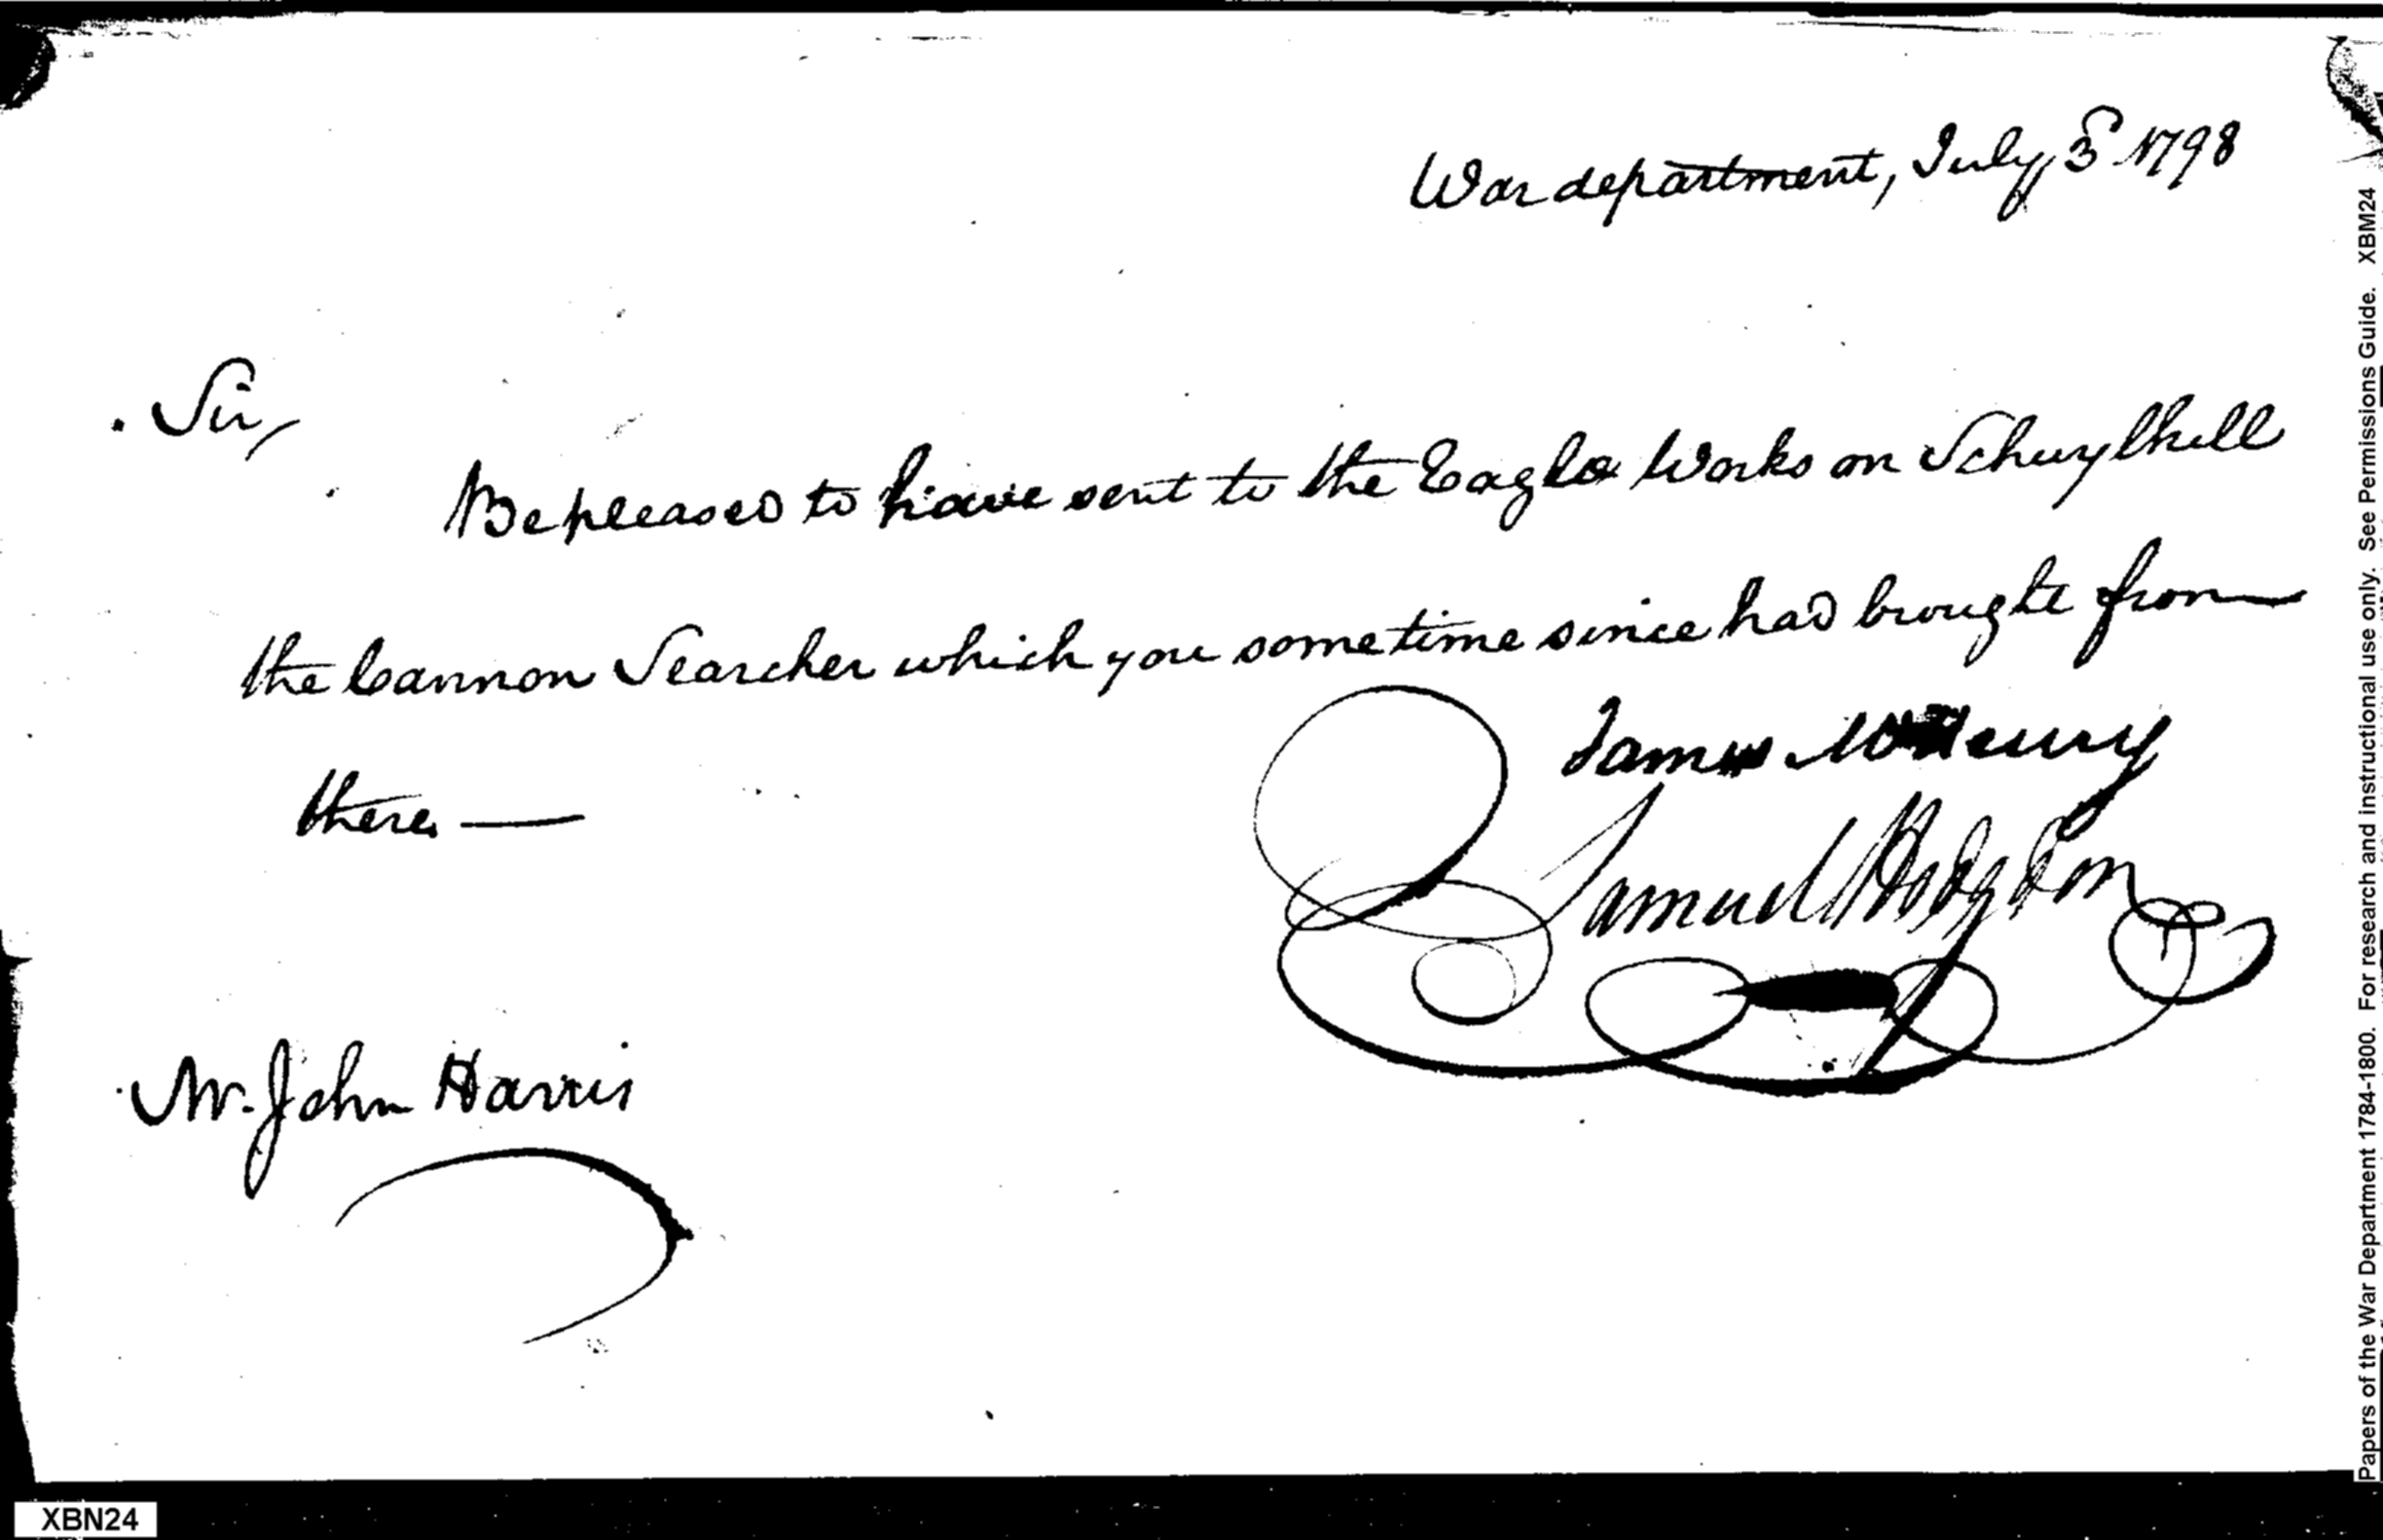 War department, July 3d 1798
Sir,
Be pleased to have sent to the Eagle Works on Schuylkill
the Cannon Searcher which you some time since had brought from
there —
James McHenry
Samuel Hodgdon
Mr. John Harris
Papers of the War Department 1784-1800. For research and instructional use only. See Permissions Guide. XBM24
XBN24